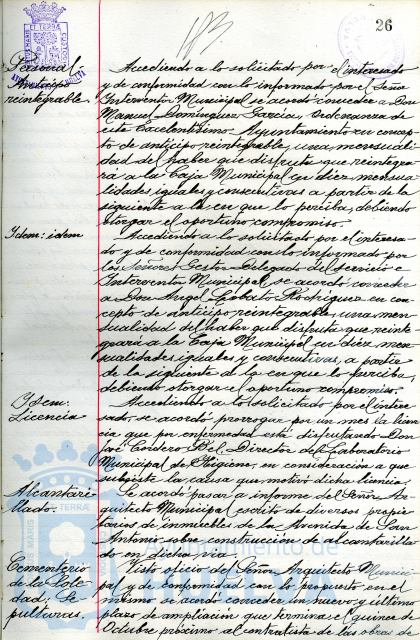 183
26
Personal- Accediendo a lo solicitado por el interesado
Anticipo y de conformidad con lo informado por el Señor
reintegrable. Interventor Municipal se acordó conceder a Don
Manuel Dominguez Garcia, ordenanza de
este Excelentísimo Ayuntamiento en concep
to de anticipo reintegrable, una mensuali
dad de haber que disfruta que reintegra
rá a la Caja Municipal en diez mensua
lidades iguales y consecutivas a partir de la
siguiente a la en que lo perciba, debiendo
otorgar el oportuno compromiso.
Idem: idem Accediendo a lo solicitado por el interesa
do y de conformidad con lo informado por
los Señores Gestor Delegado del servicio e
Interventor Municipal se acordó conceder
a Don Angel Lobato Rodriguez en con
cepto de anticipo reintegrable una men
sualidad del haber que disfruta que reinte
grará a la Caja Municipal en diez men
sualidades iguales y consecutivas, a partir
de la siguiente a la en que la perciba,
debiendo otorgar el oportuno compromiso.
Idem. Accediendo a lo solicitado por el intere
Licencia sado, se acordó prorrogar por un mes la licen
cia que por enfermedad está disfrutando Don
José Cordero Bel Director del Laboratorio
Municipal de Higiene, en consideración a que
subsiste la causa que motivó dicha licencia.
Alcantari Se acordó pasar a informe del Señor Ar
llado. quitecto Municipal escrito de diversos propie
tarios de inmuebles de la Avenida de San
Antonio sobre construcción de alcantarilla
do en dicha
Cementerio Visto oficio del Señor Arquitecto Munici
de la Sole pal y de conformidad con lo propuesto en el
dad: Se mismo se acordó conceder un nuevo y último
pulturas. plazo de ampliación que termina el quince de
Octubre próximo al contratista de las obras
Ayuntamiento de
HUELVA